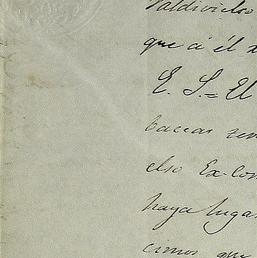 Valdivielso
que á él
E. S. = El
elso Ex-Con
haya lugar
cimos que